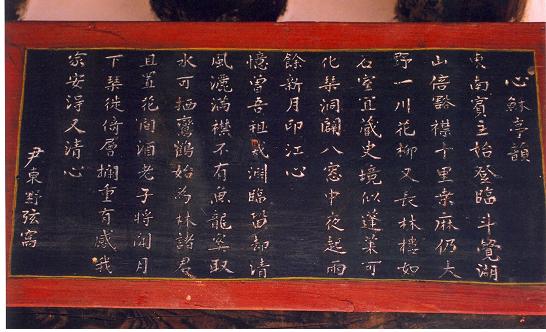 心蘇亭韻
東南賓主始登臨斗覺湖
山倍豁襟十里桑麻仍大
野一川花柳又長林樓如
石室宜藏史境似蓬萊可
化琴洞闢八窓中夜起雨
餘新月印江心
憶曾吾祖 淵臨留却清
風灑滿襟不有魚龍 取
水可栖鸞鶴始為林諸君
且置花間酒老子將聞月
下琴徙倚層欄重有感我
宗安得又清心
尹東野弦窩